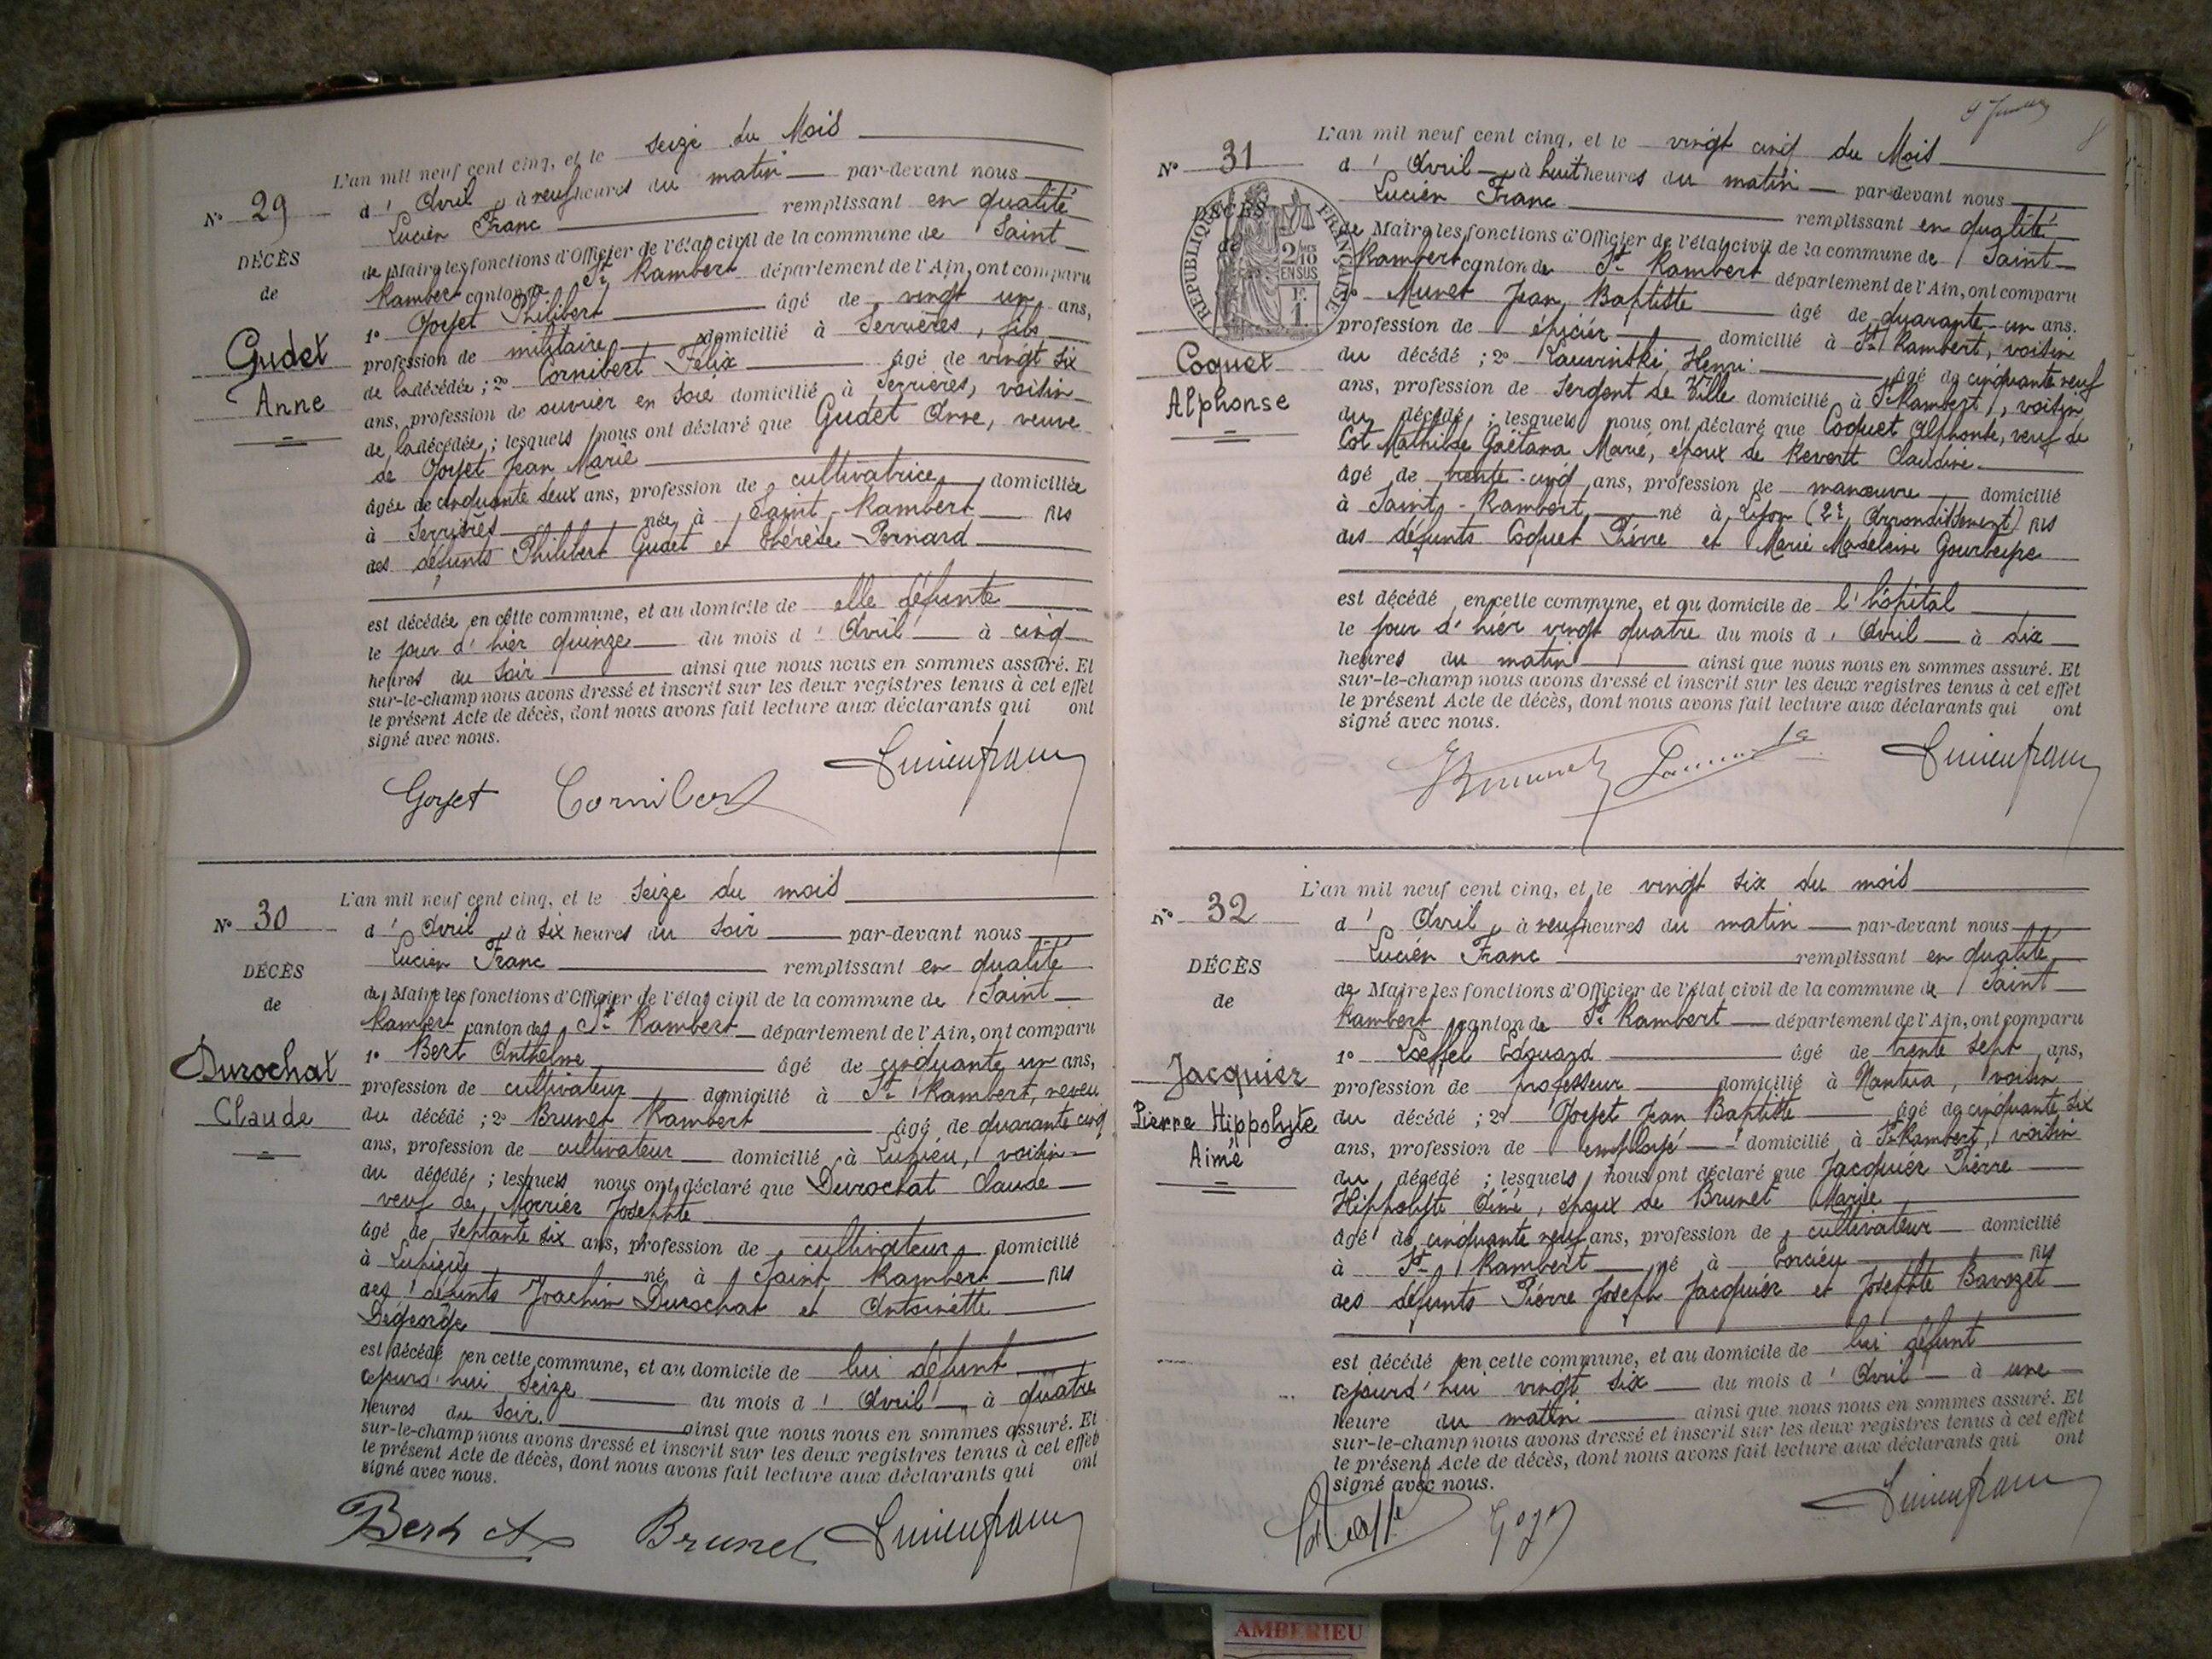 L'an mil neuf cent cinq, et le seize du Mois
N° 29
d' Avril à neuf heures du matin par-devant nous
Lucien Franc remplissant en qualité
DÉCÈS
de Maire les fonctions d'Officier de l'état civil de la commune de Saint
de
Rambert canton de St Rambert département de l'Ain, ont comparu
1° Goyet Philibert âgé de vingt un ans,
Gudet
profession de militaire domicilié à Serrières, fils
de la décédée ; 2° Cornibert Félix âgé de vingt six
Anne
ans, profession de ouvrier en soie domicilié à Serrières, voisin
de la décédée ; lesquels nous ont déclaré que Gudet Anne, veuve
de Goyet Jean Marie
âgée de cinquante deux ans, profession de cultivatrice domiciliée
à Serrières née à Saint Rambert fils
des défunts Philibert Gudet et Thérèse Pernard
est décédée en cette commune, et au domicile de elle défunte
le jour d'hier quinze du mois d' Avril à cinq
heures du soir ainsi que nous nous en sommes assuré. Et
sur-le-champ nous avons dressé et inscrit sur les deux registres tenus à cet effet
le présent Acte de décès, dont nous avons fait lecture aux déclarants qui ont
signé avec nous.
Goyet Cornibert Lucien Franc
L'an mil neuf cent cinq, et le seize du mois
N° 30
d' Avril à six heures du soir par-devant nous
Lucien Franc remplissant en qualité
DÉCÈS
de Maire les fonctions d'Officier de l'état civil de la commune de Saint
de
Rambert canton de St Rambert département de l'Ain, ont comparu
1° Bert Anthelme âgé de cinquante un ans,
Durochat
profession de cultivateur domicilié à St Rambert, neveu
Claude
du décédé ; 2° Brunet Rambert âgé de quarante cinq
ans, profession de cultivateur domicilié à Lupieu, voisin
du décédé ; lesquels nous ont déclaré que Durochat Claude
veuf de Morrier Josephte
âgé de septante six ans, profession de cultivateur domicilié
à Lupieu né à Saint Rambert fils
des défunts Joachim Durochat et Antoinette
Degeorge
est décédé en cette commune, et au domicile de lui défunt
cejourd'hui seize du mois d' Avril à quatre
heures du soir ainsi que nous nous en sommes assuré. Et
sur-le-champ nous avons dressé et inscrit sur les deux registres tenus à cet effet
le présent Acte de décès, dont nous avons fait lecture aux déclarants qui ont
signé avec nous.
Bert A Brunet Lucien Franc
L'an mil neuf cent cinq, et le vingt cinq du Mois
N° 31
d' Avril à huit heures du matin par-devant nous
Lucien Franc remplissant en qualité
DÉCÈS
de
RÉPUBLIQUE FRANÇAISE
2/10 EN SUS
1F.
de Maire les fonctions d'Officier de l'état civil de la commune de Saint
Rambert canton de St Rambert département de l'Ain, ont comparu
1° Munet Jean Baptiste âgé de quarante un ans.
profession de épicier domicilié à St Rambert, voisin
Coquet
du décédé ; 2° Henri âgé de cinquante neuf
Alphonse
ans, profession de Sergent de Ville domicilié à St Rambert, voisin
du décédé ; lesquels nous ont déclaré que Coquet Alphonse, veuf de
Cot Mathilde Gaëtana Marie, époux de Revertt Claudine
âgé de trente cinq ans, profession de manœuvre domicilié
à Saint-Rambert né à Lyon (2e Arrondissement) fils
des défunts Coquet Pierre et Marie Madeleine
est décédé en cette commune, et au domicile de l'hôpital
le jour d'hier vingt quatre du mois d' Avril à six
heures du matin ainsi que nous nous en sommes assuré. Et
sur-le-champ nous avons dressé et inscrit sur les deux registres tenus à cet effet
le présent Acte de décès, dont nous avons fait lecture aux déclarants qui ont
signé avec nous.
Lucien Franc
L'an mil neuf cent cinq, et le vingt six du mois
N° 32
d' Avril à neuf heures du matin par-devant nous
Lucien Franc remplissant en qualité
DÉCÈS
de Maire les fonctions d'Officier de l'état civil de la commune de Saint
de
Rambert canton de St Rambert département de l'Ain, ont comparu
1° Loeffel Edouard âgé de trente sept ans,
Jacquier
profession de professeur domicilié à Nantua, voisin
Pierre Hippolyte
du décédé ; 2° Goyet Jean Baptiste âgé de cinquante six
Aimé
ans, profession de employé domicilié à St Rambert, voisin
du décédé ; lesquels nous ont déclaré que Jacquier Pierre
Hippolyte Aimé, époux de Brunet Marie
âgé de cinquante neuf ans, profession de cultivateur domicilié
à St Rambert né à Torcieu fils
des défunts Pierre Joseph Jacquier et Josephte Bavozet
est décédé en cette commune, et au domicile de lui défunt
cejourd'hui vingt six du mois d' Avril à une
heure du matin ainsi que nous nous en sommes assuré. Et
sur-le-champ nous avons dressé et inscrit sur les deux registres tenus à cet effet
le présent Acte de décès, dont nous avons fait lecture aux déclarants qui ont
signé avec nous.
Lucien Franc
AMBERIEU